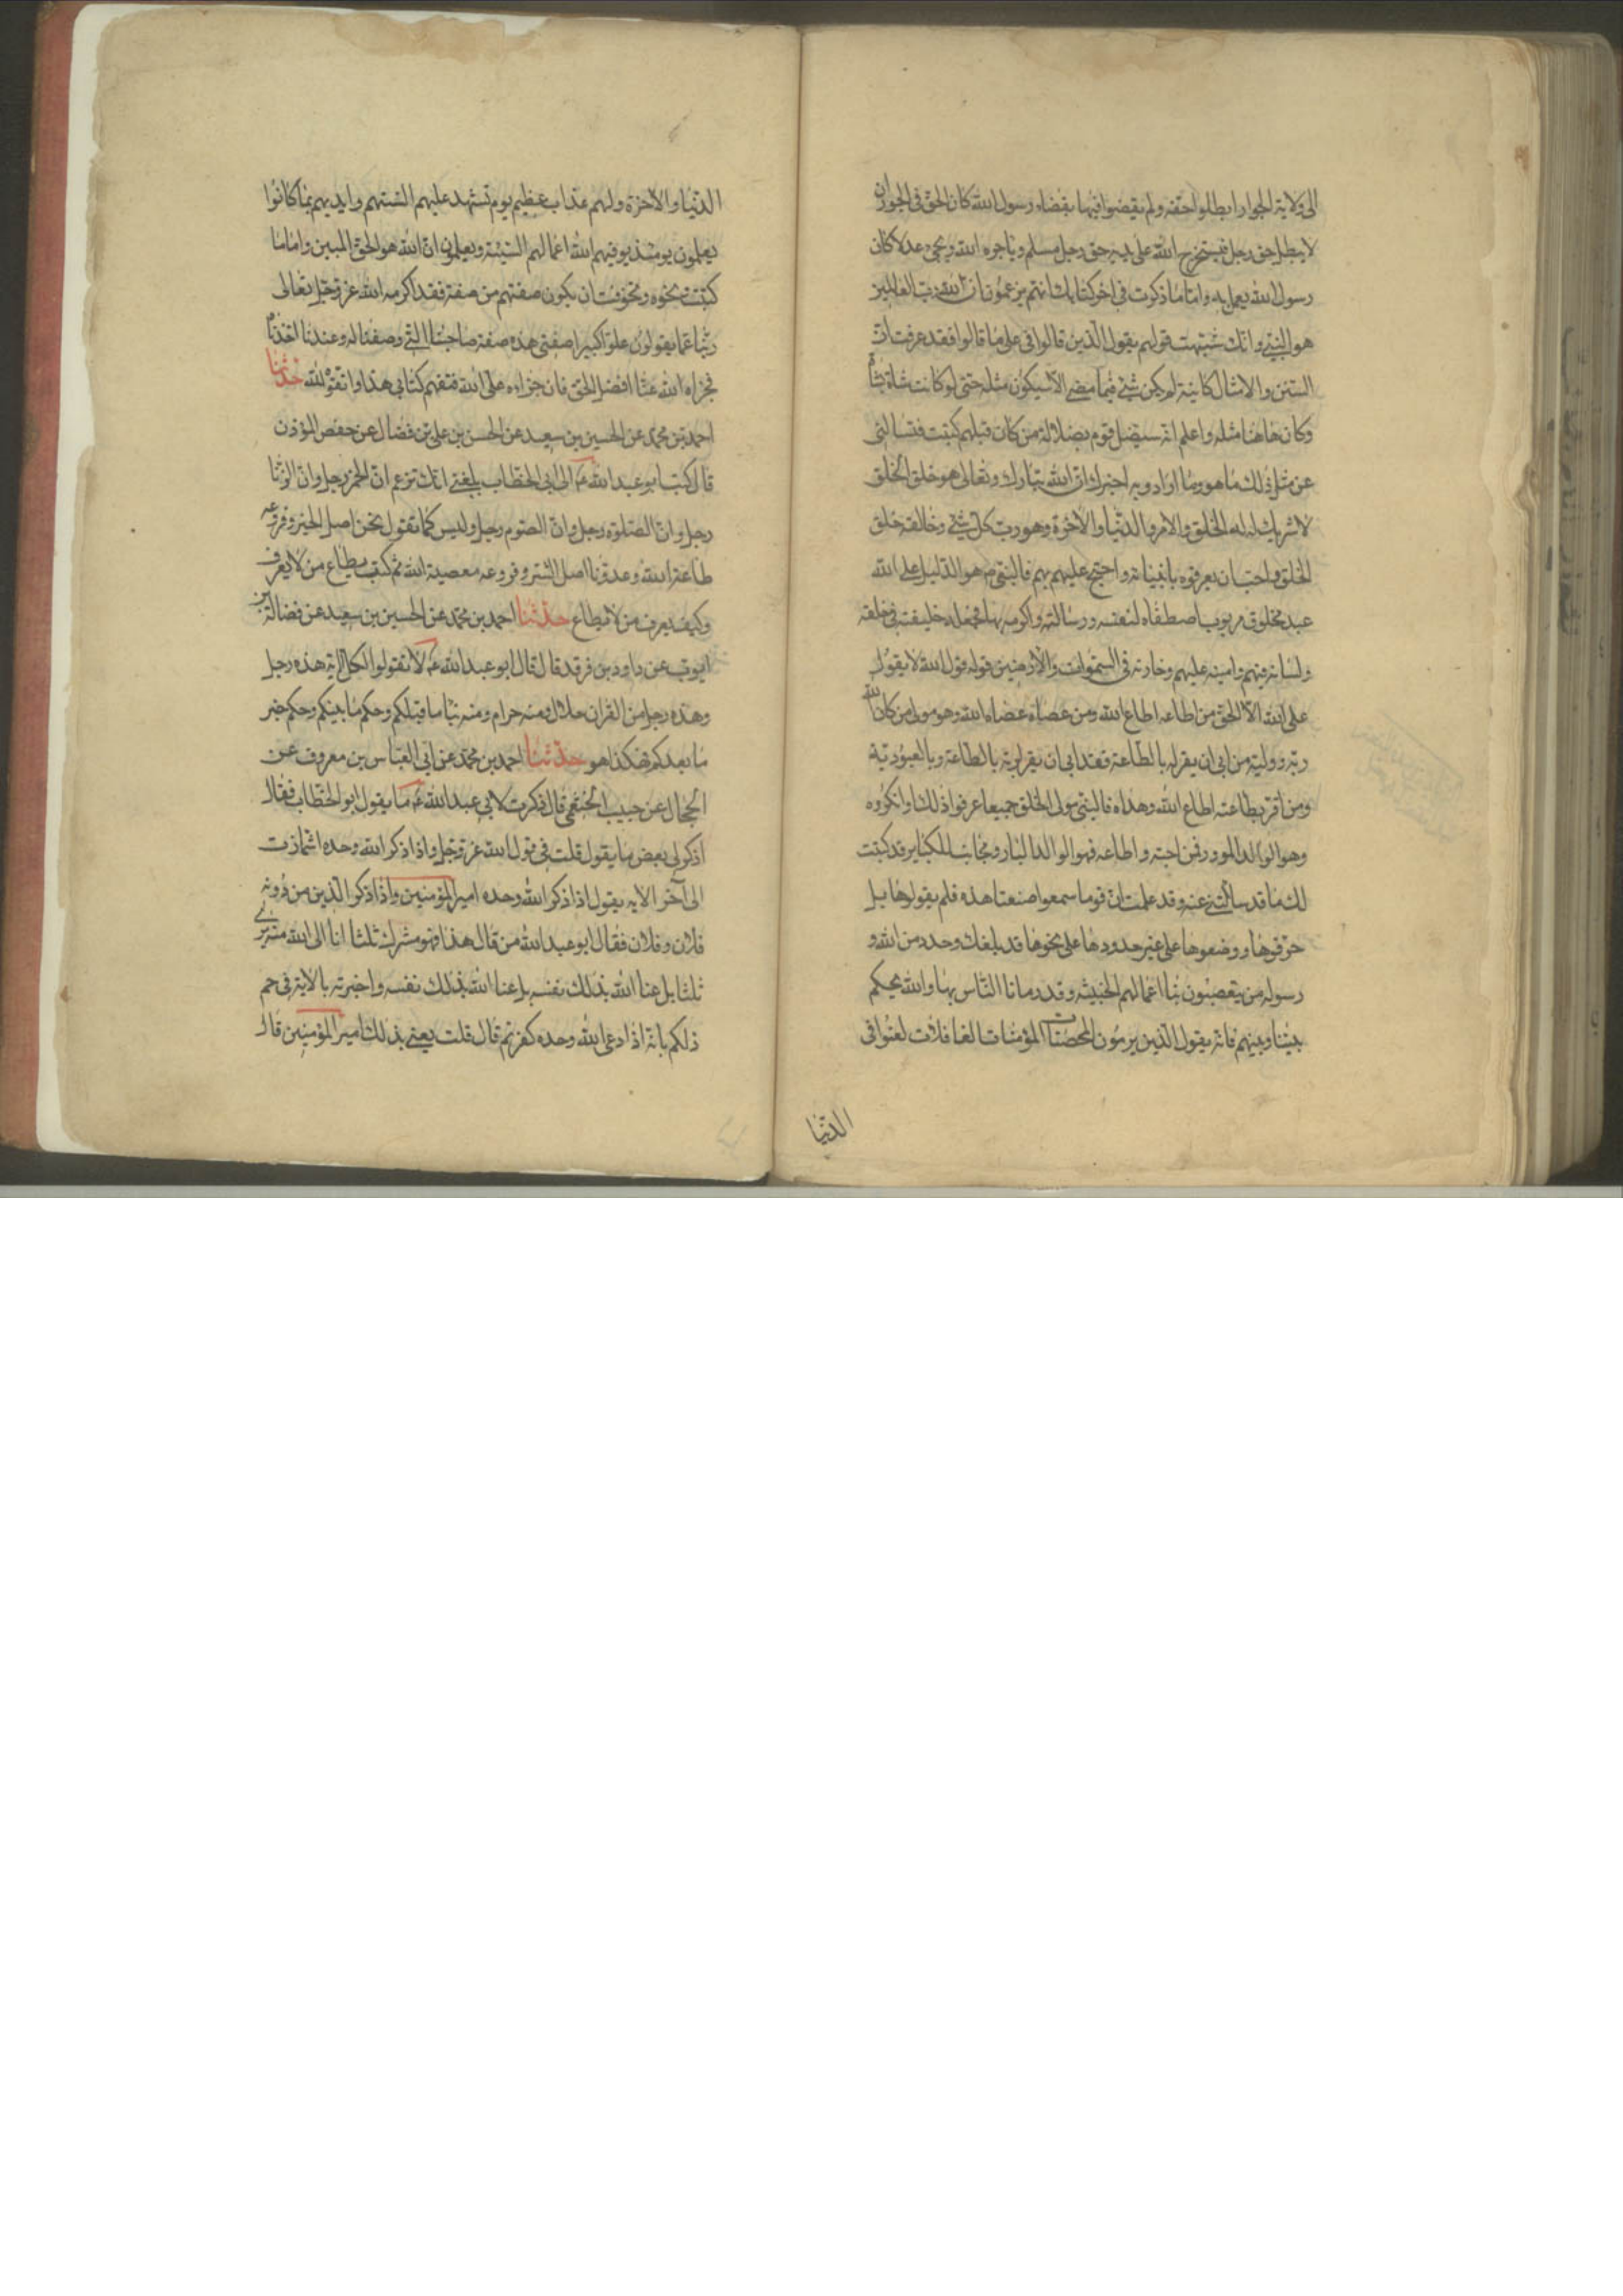 الى ولاية الجوار ابطلوا حقه ولم يقضوا فيها بقضاء رسول الله كان الحق في الجور ان
لا يبطل حق رجل فيستخرج الله على يديه حق رجل مسلم وياجره الله ويحيى عدلا كان
رسول الله يعمل به واما ما ذكرت في اخر كتابك انهم يزعمون ان الله رب العالمين
هو النبي وانك شبهت قولهم بقول الذين قالوا في على ما قالوا فقد عرفت ان
السنن والامثال كاينة لم يكن شئ فيما مضى الا سيكون مثله حتى لو كانت شاة بشاة
وكان هاهنا مثله واعلم انه سيضل قوم بضلالة من كان قبلهم كتبت فتسالنى
عن مثل ذلك ما هو وما ارادوا به اخبرك ان الله تبارك وتعالى هو خلق الخلق
لا شريك له له الخلق والامر والدنيا والاخرة وهو رب كل شئ وخالقه خلق
الخلق واحب ان يعرفوه بانبيائه واحتج عليهم بهم فالنبي ص هو الدليل على الله
عبد مخلوق مربوب اصطفاه لنفسه ورسالته واكرمه بها فجعله خليفته في خلقه
ولسانه فيهم وامينه عليهم وخازنه في السموات والارضين قوله قول الله لا يقول
على الله الا الحق من اطاعه اطاع الله ومن عصاه عصاه الله وهو مولى من كان الله
ربه ووليه من ابى ان يقر له بالطاعة فقد ابى ان يقر لربه بالطاعة وبالعبودية
ومن اقر بطاعته اطاع الله وهداه فالنبي مولى الخلق جميعا عرفوا ذلك او انكروه
وهو الوالد المبرور فمن احبه واطاعه فهو الولد البار ومجانب للكباير قد كتبت
لك ما قد سالتنى عنه وقد علمت ان قوما سمعوا صنعتنا هذه فلم يقولوها بل
حرفوها ووضعوها على غير حدودها على نحو ما قد بلغك وحدد من الله و
رسوله من يتعصبون بنا اعمالهم الخبيثه وقد رمانا الناس بها والله يحكم
بيننا وبينهم فانه يقول الذين يرمون المحصنات المؤمنات الغافلات لعنوا في
الدنيا
الدنيا والاخرة ولهم عذاب عظيم يوم تشهد عليهم السنتهم وايديهم بما كانوا
يعملون يومئذ يوفيهم الله اعمالهم السيئة ويعلمون ان الله هو الحق المبين واما ما
كتبت بنحوه وتخوفت ان يكون صفتهم من صفة فقد اكرمه الله عز وجل تعالى
ربنا عما يقولون علوا كبيرا صفتى هذه صفة صاحبنا التي وصفنا له وعندنا اخذنا
فجزاه الله عنا افضل الحق فان جزاءه على الله فتفهم كتابى هذا والقوة لله حدثنا
احمد بن محمد عن الحسين بن سعيد عن الحسن بن على بن فضال عن حفص المؤذن
قال كتب ابو عبد الله ع الى ابى الخطاب بلغنى انك تزعم ان الخمر رجل وان الزنا
رجل وان الصلوة رجل وان الصوم رجل وليس كما تقول نحن اصل الخير وفروعه
طاعة الله وعدونا اصل الشر وفروعه معصية الله ثم كتب يطاع من لا يعرف
وكيف يعرف من لا يطاع حدثنا احمد بن محمد عن الحسين بن سعيد عن فضالة بن
ايوب عن داود بن فرقد قال قال ابو عبد الله ع لا تقولوا لكل اية هذه رجل
وهذه رجل من القران حلال ومنه حرام ومنه نبا ما قبلكم وحكم ما بينكم وحكم خبر
ما بعدكم فهكذا هو حدثنا احمد بن محمد عن ابى العباس بن معروف عن
الحجال عن حبيب الخثعمى قال ذكرت لابى عبد الله ع ما يقول ابو الخطاب فقال
اذكر لى بعض ما يقول قلت في قول الله عز وجل واذا ذكر الله وحده اشمازت
الى آخر الايه يقول اذا ذكر الله وحده امير المؤمنين واذا ذكر الذين من دونه
فلان وفلان فقال ابو عبد الله من قال هذا فهو مشرك ثلثا انا الى الله منه برئ
ثلثا بل عنا الله بذلك نفسه بل عنا الله بذلك نفسه واخبرته بالاية في حم
ذلكم بانه اذا دعى الله وحده كفرتم قال قلت يعنى بذلك امير المؤمنين قال